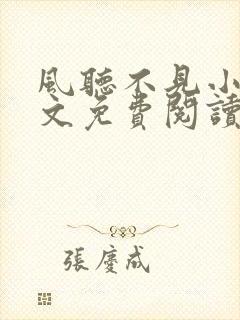 風聽不見小
文免費閱讀
張慶成